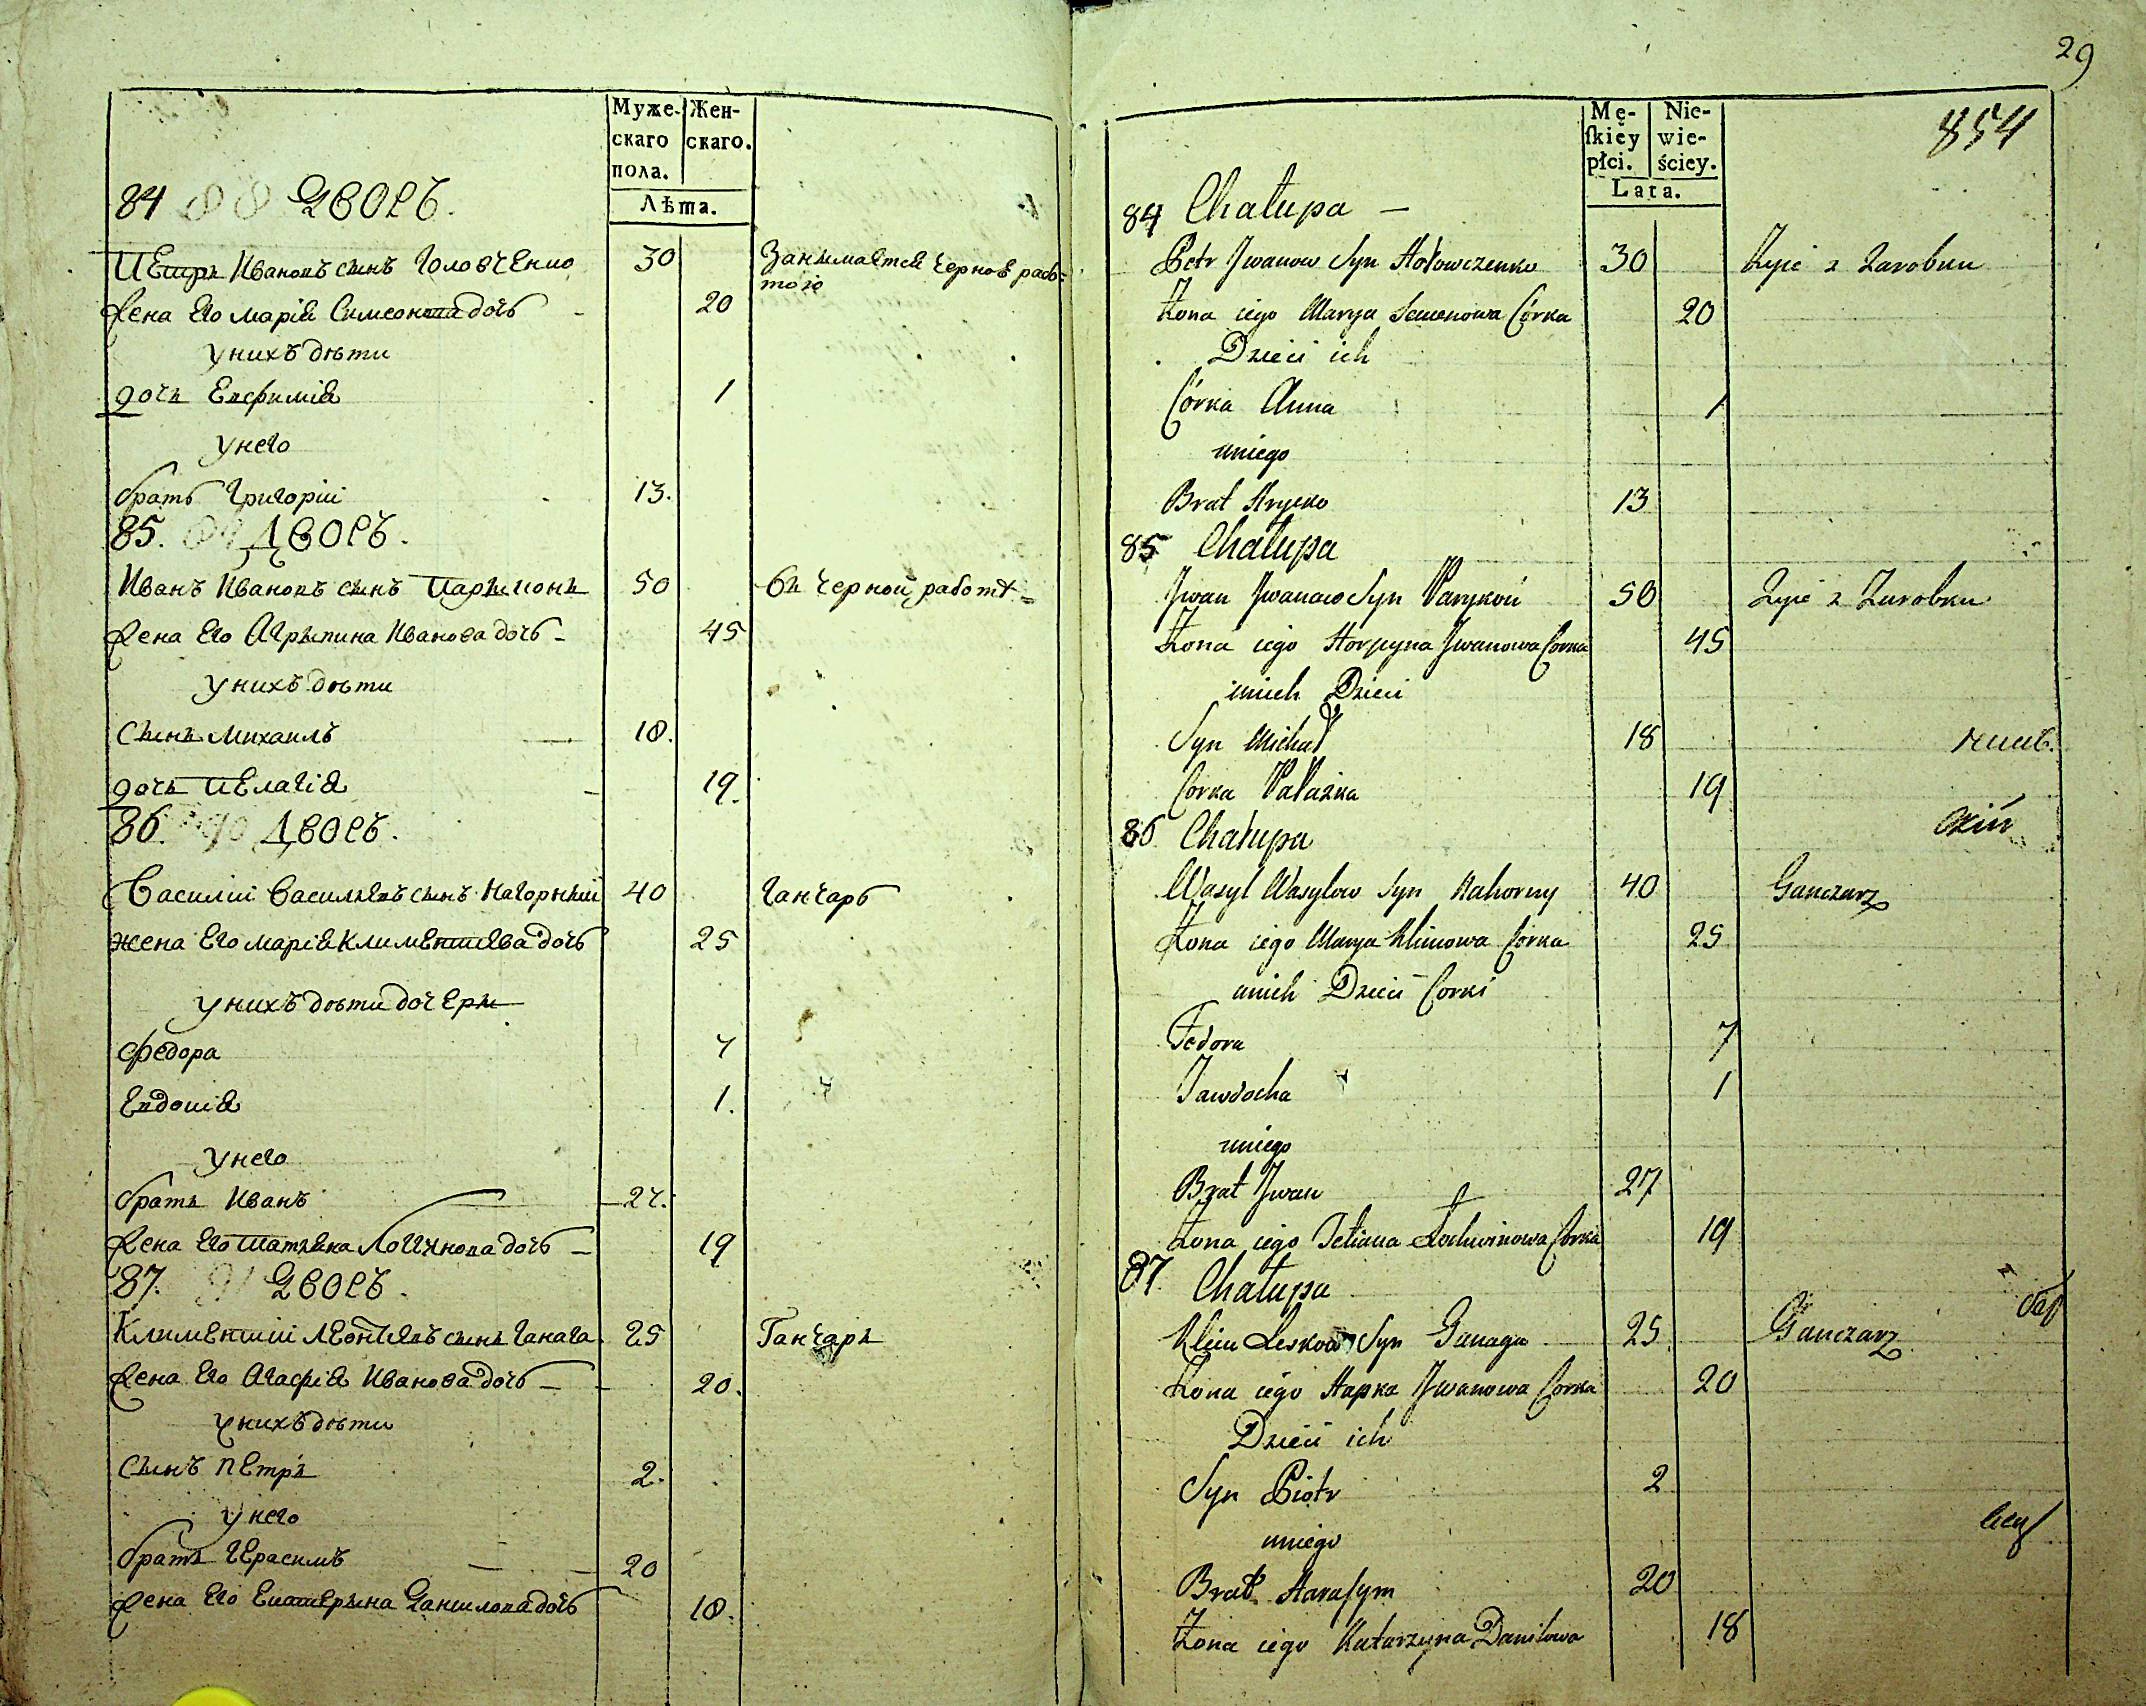 Муже-
скаго
пола.
Жен-
скаго.
Лѣта.
84 88 Дворъ.
Петръ Ивановъ сынъ Головченко 30 Занимается черной рабо-
тою
Жена Его марія Симеонова дочь 20
у нихъ дѣти
дочь Евфимія 1
у него
братъ Григорій 13.
85. 89 Дворъ.
Иванъ Ивановъ сынъ Парыконь 50 въ черной работѣ
Жена Его Агрыпина Иванова дочь 45
у нихъ дѣти
Сынъ михаилъ 18.
дочь Пелагія 19.
86. 90 Дворъ.
Василій Васильевъ сынъ Нагорный 40 Ганчарь
жена Его марія Климентиева дочь 25
у нихъ дѣти дочеры
Федора 7
Евдокія 1.
у него
братъ Иванъ 27.
Жена Его Татьяна Логинова дочь 19
87. 91 Дворъ.
Климентій Леонтьевъ сынъ Ганага 25 Ганчаръ
Жена Его Агафія Иванова дочь 20.
у нихъ дѣти
Сынъ Петръ 2.
у него
братъ Герасимъ 20
Жена Его Екатерына Данилова дочь 18.
29
854
Mę-
ſkiéy
płci.
Nie-
wie-
ściey.
Lata.
84 Chałupa
Petr Jwanow Syn Hołowczenko 30 Żyie z Zarobku
Żona iego Marya Semenowa Córka 20
Dzieci ich
Córka Anna 1
uniego
Brat Hryćko 13
85 Chałupa
Jwan Jwanow Syn Parykoń 50 Żyie z Zarobku
Żona iego Horpyna Jwanowa Corka 45
unich Dzieci
Syn Michał 18
Corka Pałażka 19
86 Chałupa
Wasyl Wasylow Syn Nahorny 40 Ganczarz
Żona iego Marya Klimowa Córka 25
unich Dzieci Corki
Fedora 7
Jawdocha 1
uniego
Brat Jwan 27
Żona iego Tetiana Łochwinowa Corka 19
87 Chałupa
Klim Leskow Syn Ganaga 25 Ganczarz
Żona iego Hapka Jwanowa Corka 20
Dzieci ich
Syn Piotr 2
uniego
Brat Harasym 20
Żona iego Katarzyna Daniłowa 18